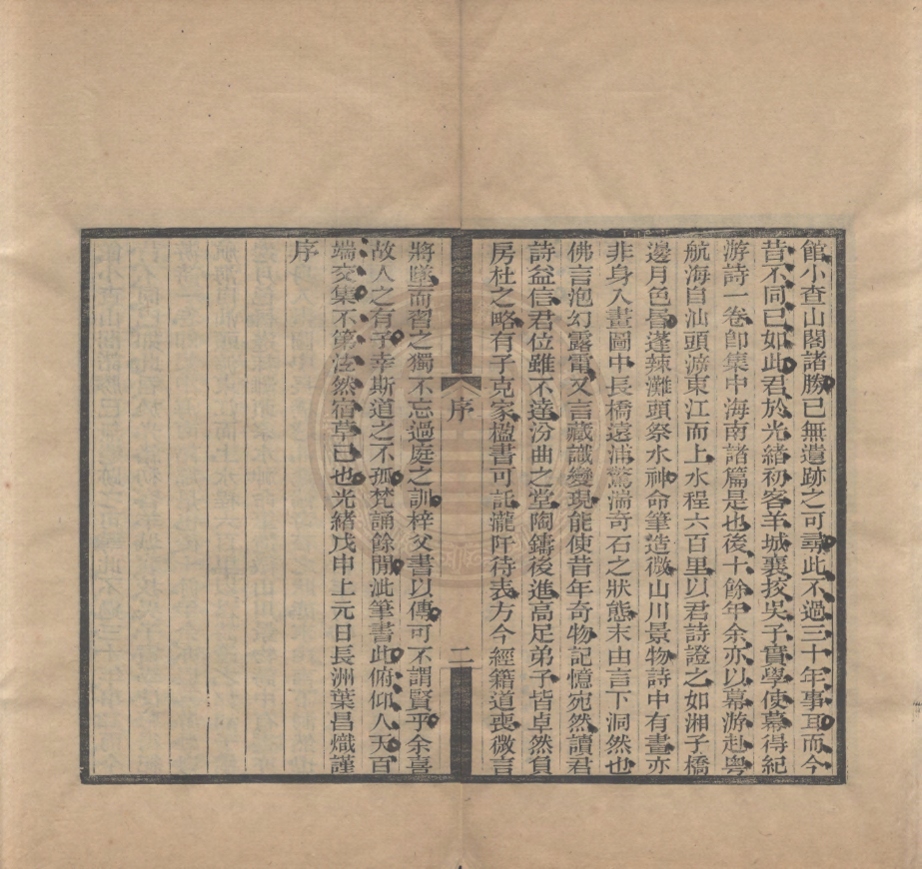 館小查山閣諸勝已無遺跡之可尋此不過三十年事耳而今
昔不同已如此君於光緒初客羊城襄挍吳子實學使幕得紀
游詩一卷卽集中海南諸篇是也後十餘年余亦以幕游赴粵
航海自汕頭㳺東江而上水程六百里以君詩證之如湘子橋
邊月色昬蓬辣灘頭祭水神命筆造微山川景物詩中有畫亦
非身入畫圖中長橋遠浦驚湍奇石之狀態末由言下洞然也
佛言泡幻露電又言藏識變現能使昔年奇物記憶宛然讀君
詩益信君位雖不達汾曲之堂陶鑄後進高足弟子皆卓然負
房杜之略有子克家楹書可託瀧阡待表方今經籍道喪微言
將墜而習之獨不忘過庭之訓梓父書以傳可不謂賢乎余喜
故人之有子幸斯道之不孤梵誦餘閒泚筆書此俯仰人天百
端交集不第泫然宿草已也光緒戊申上元日長洲葉昌熾謹
序
序
二